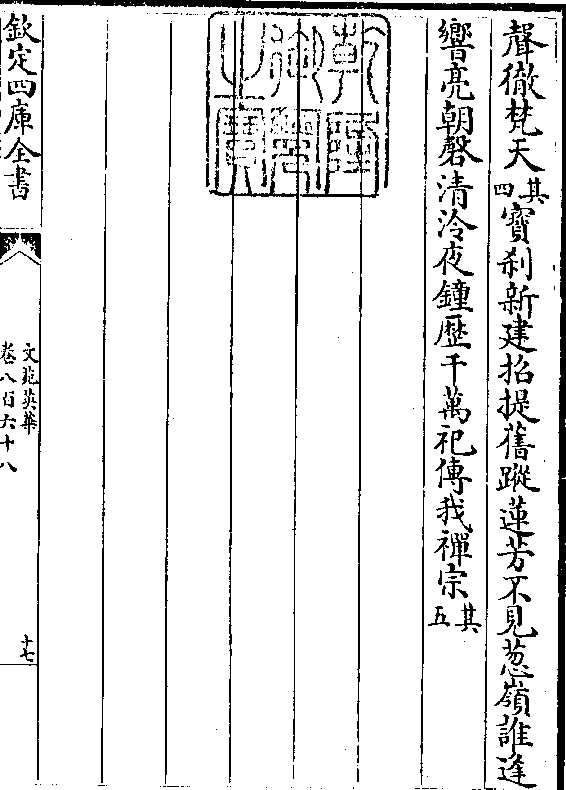 聲徹梵天其四寳刹新建招提舊蹤蓮芳不見葱嶺誰逢
響亮朝磬清泠夜鐘歴千萬祀傳我禪宗其五
乾隆御覽之寶
欽定四庫全書
文苑英華
卷八百六十八
十七